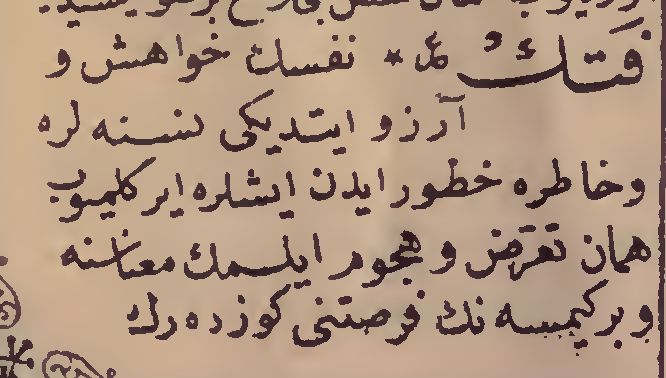 فتك ع * نفسك خواهش و
آرزو ايتديكى نسنه لره
وخاطره خطور ايدن ايشلره اير كلميوب
همان تعرّض و هجوم ايلمك معناسنه
و بر كيمسه نك فرصتنى كوزده رك